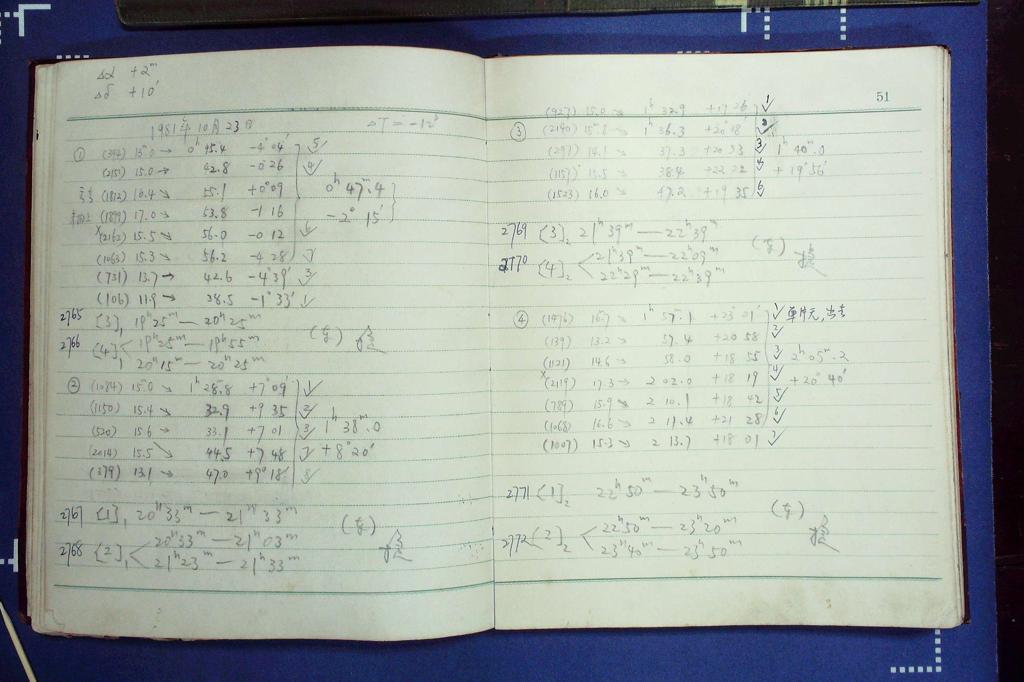 Δα +2ᵐ
Δδ +10′
1981年10月23日 ΔT = -12ˢ
① (394) 15.0 → 0ʰ 45.4 -4°04′ 5
(2151) 15.0 → 42.8 -0 26 4
(1812) 16.4 → 55.1 +0°09 0ʰ 47ᵐ.4
(1899) 17.0 → 53.8 -1 16 -2° 15′
×(2162) 15.5 ↘ 56.0 -0 12
(1063) 15.3 ↘ 56.2 -4 28
(731) 13.7 → 42.6 -4°39′ 3
(106) 11.9 → 38.5 -1°33′ 1
2765 [3]₁ 19ʰ25ᵐ — 20ʰ25ᵐ
2766 [4]₁ 19ʰ25ᵐ — 19ʰ55ᵐ
20ʰ15ᵐ — 20ʰ25ᵐ
② (1084) 15.0 → 1ʰ 28.8 +7°09′ 1
(1150) 15.4 → 32.9 +9 35 2
(520) 15.6 ↘ 33.1 +7 01 3 1ʰ 38ᵐ.0
(2014) 15.5 ↘ 44.5 +7 48 +8°20′
(379) 13.1 → 47.0 +9°18′
2767 [1]₁ 20ʰ33ᵐ — 21ʰ33ᵐ
2768 [2]₁ 20ʰ33ᵐ — 21ʰ03ᵐ
21ʰ23ᵐ — 21ʰ33ᵐ
51
(927) 15.0 → 1ʰ 32.9 +17 26 1
③ (2190) 15.8 → 1ʰ 36.3 +20°18′ 2
(291) 14.1 → 37.3 +20 53 3 1ʰ 40ᵐ.0
(1157) 15.5 38.4 +22 22 4 +19°56′
(1523) 16.0 → 47.2 +19 35 6
2769 [3]₂ 21ʰ39ᵐ — 22ʰ39ᵐ
2770 [4]₂ 21ʰ39ᵐ — 22ʰ09ᵐ
22ʰ29ᵐ — 22ʰ39ᵐ
④ (1476) 16.7 → 1ʰ 57.1 +23°01′ 1 单片元,出去
(139) 13.2 → 57.4 +20 58 2
(1121) 14.6 → 58.0 +18 55 3 2ʰ05ᵐ.2
×(2119) 17.3 → 2 02.0 +18 19 4 +20°40′
(789) 15.9 ↘ 2 10.1 +18 42 5
(1068) 16.6 ↘ 2 11.4 +21 28 6
(1007) 15.3 ↘ 2 13.7 +18 01 7
2771 [1]₂ 22ʰ50ᵐ — 23ʰ50ᵐ
2772 [2]₂ 22ʰ50ᵐ — 23ʰ20ᵐ
23ʰ40ᵐ — 23ʰ50ᵐ